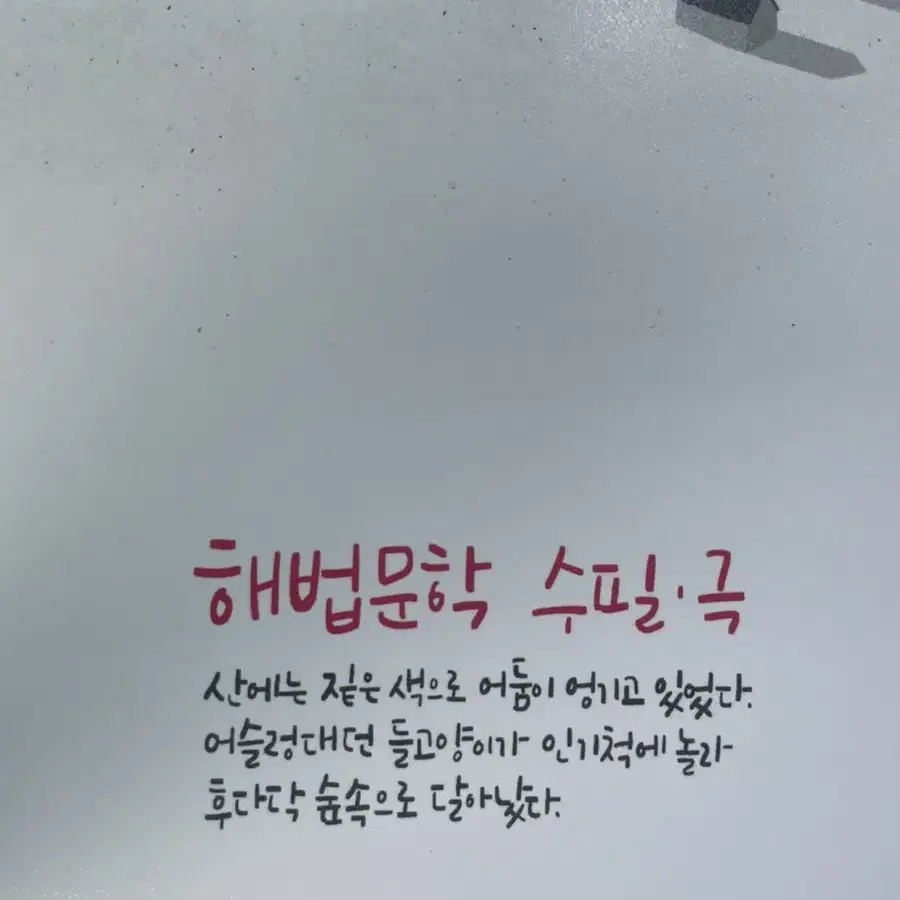 해법문학 수필·극
산에는 짙은 색으로 어둠이 엉기고 있었다.
어슬렁대던 들고양이가 인기척에 놀라
후다닥 숲속으로 달아났다.